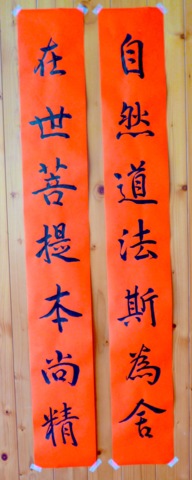 自然道法斯為舍
在世菩提本尚精